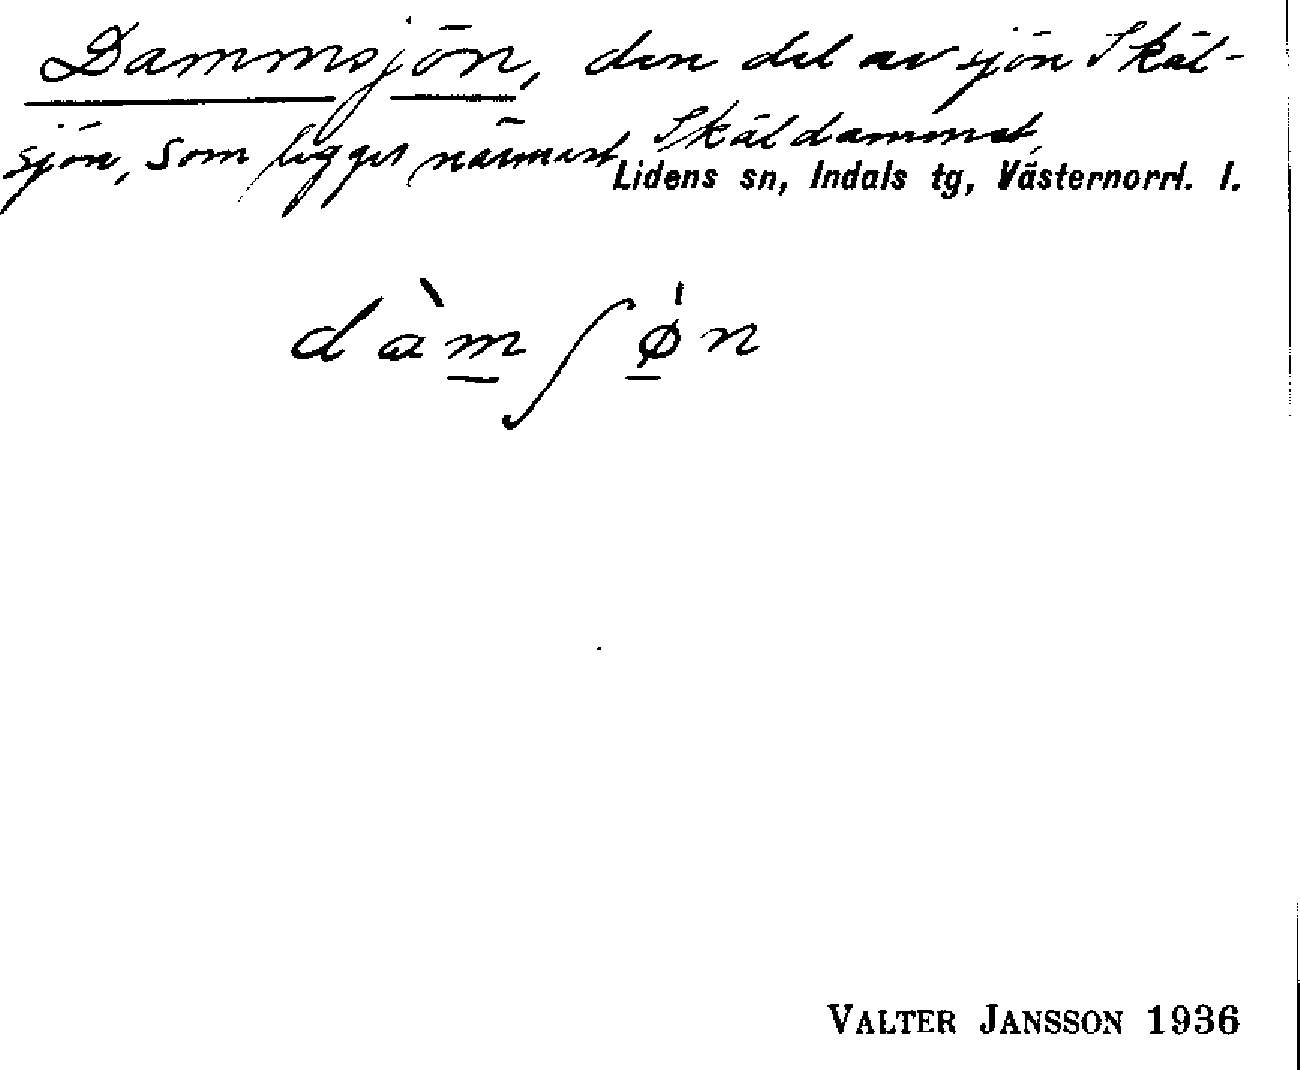 Dammsjön, den del av sjön Skäl-
sjön, som ligger närmast Skäldammet.
Lidens sn, Indals tg, Västernorrl. l.
dàm̲ʃø̲̍n
VALTER JANSSON 1936